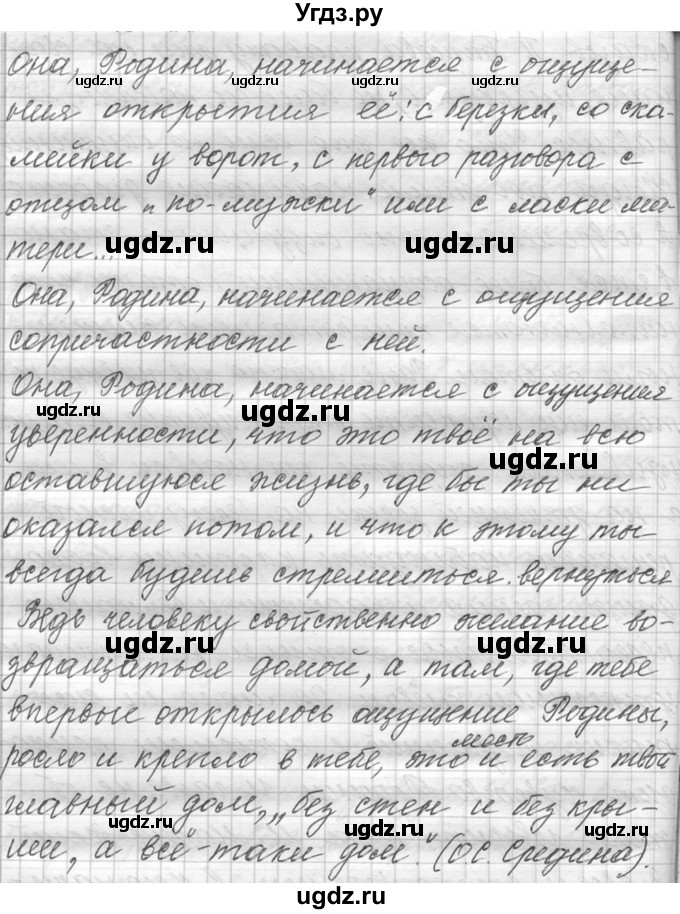 Угдз.ру
Она, Родина, начинается с ощуще-
ния открытия её: с березки, со ска-
мейки у ворот, с первого разговора с
отцом „по-мужски" или с ласки ма-
тери...
Она, Родина, начинается с ощущения
сопричастности с ней.
Она, Родина, начинается с ощущения
уверенности, что это твоё на всю
оставшуюся жизнь, где бы ты ни
оказался потом, и что к этому ты
всегда будешь стремиться вернуться
Ведь человеку свойственно желание во-
звращаться домой, а там, где тебе
впервые открылось ощущение Родины,
росло и крепло в тебе, это и есть твой
главный дом, „без стен и без кры-
ши, а всё-таки дом". (О. С. Средина).
ugdz.ru ugdz.ru ugdz.ru
ugdz.ru ugdz.ru
ugdz.ru ugdz.ru
ugdz.ru
ugdz.ru ugdz.ru
ugdz.ru ugdz.ru ugdz.ru
ugdz.ru